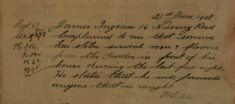 21st June 1908
James Ingram 16 Nursery Road
complained to me that someone
has stolen several roses & flowers
from the Garden in front of his
house during the last few nights
He states that he will prosecute
anyone that is caught